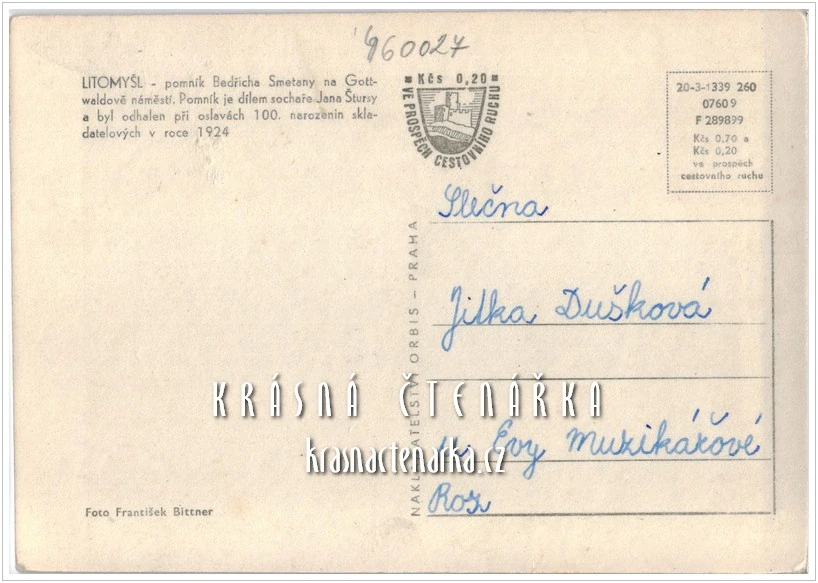 460027
LITOMYŠL - pomník Bedřicha Smetany na Gott-
waldově náměstí. Pomník je dílem sochaře Jana Štursy
a byl odhalen při oslavách 100. narozenin skla-
datelových v roce 1924
Kčs 0,20
VE PROSPĚCH CESTOVNÍHO RUCHU
20-3-1339 260
07609
F 289899
Kčs 0,70 a
Kčs 0,20
ve prospěch
cestovního ruchu
Slečna
Jitka Dušková
Evy Muzikářové
Roz
NAKLADATELSTVÍ ORBIS – PRAHA
KRÁSNÁ ČTENÁŘKA
krasnactenarka.cz
Foto František Bittner